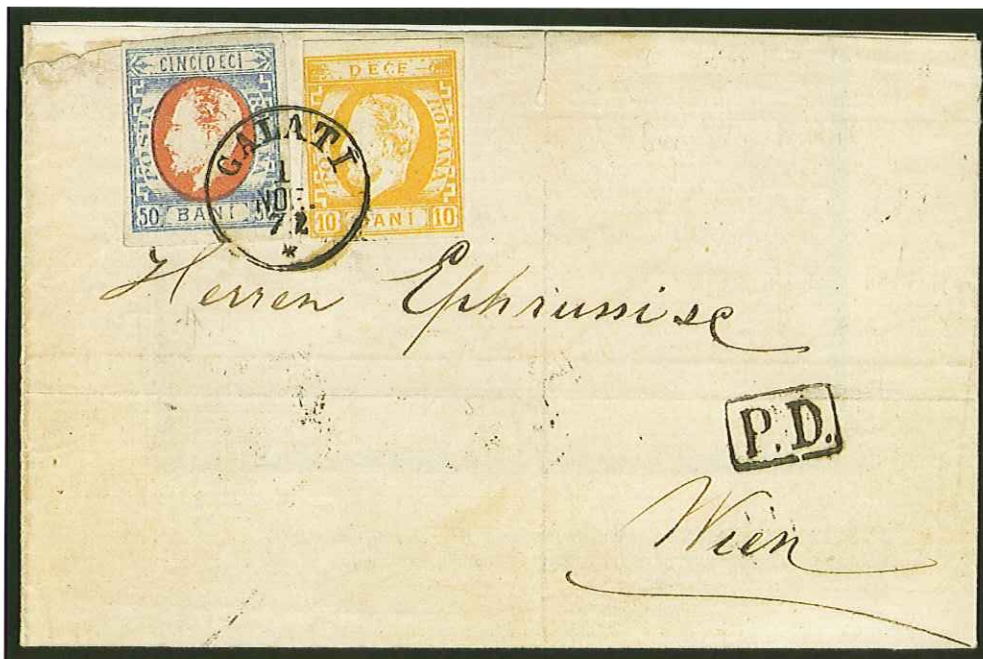 CINCIDECI
POSTA ROMANA
50 BANI 50
DECE
POSTA ROMANA
10 BANI 10
GALATI
1
NOE.
72
*
Herren Ephrussi & C
P.D.
Wien